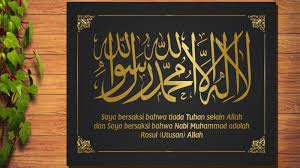 لا إله إلا الله محمد رسول الله
Saya bersaksi bahwa tiada Tuhan selain Allah
dan Saya bersaksi bahwa Nabi Muhammad adalah
Rosul (Utusan) Allah